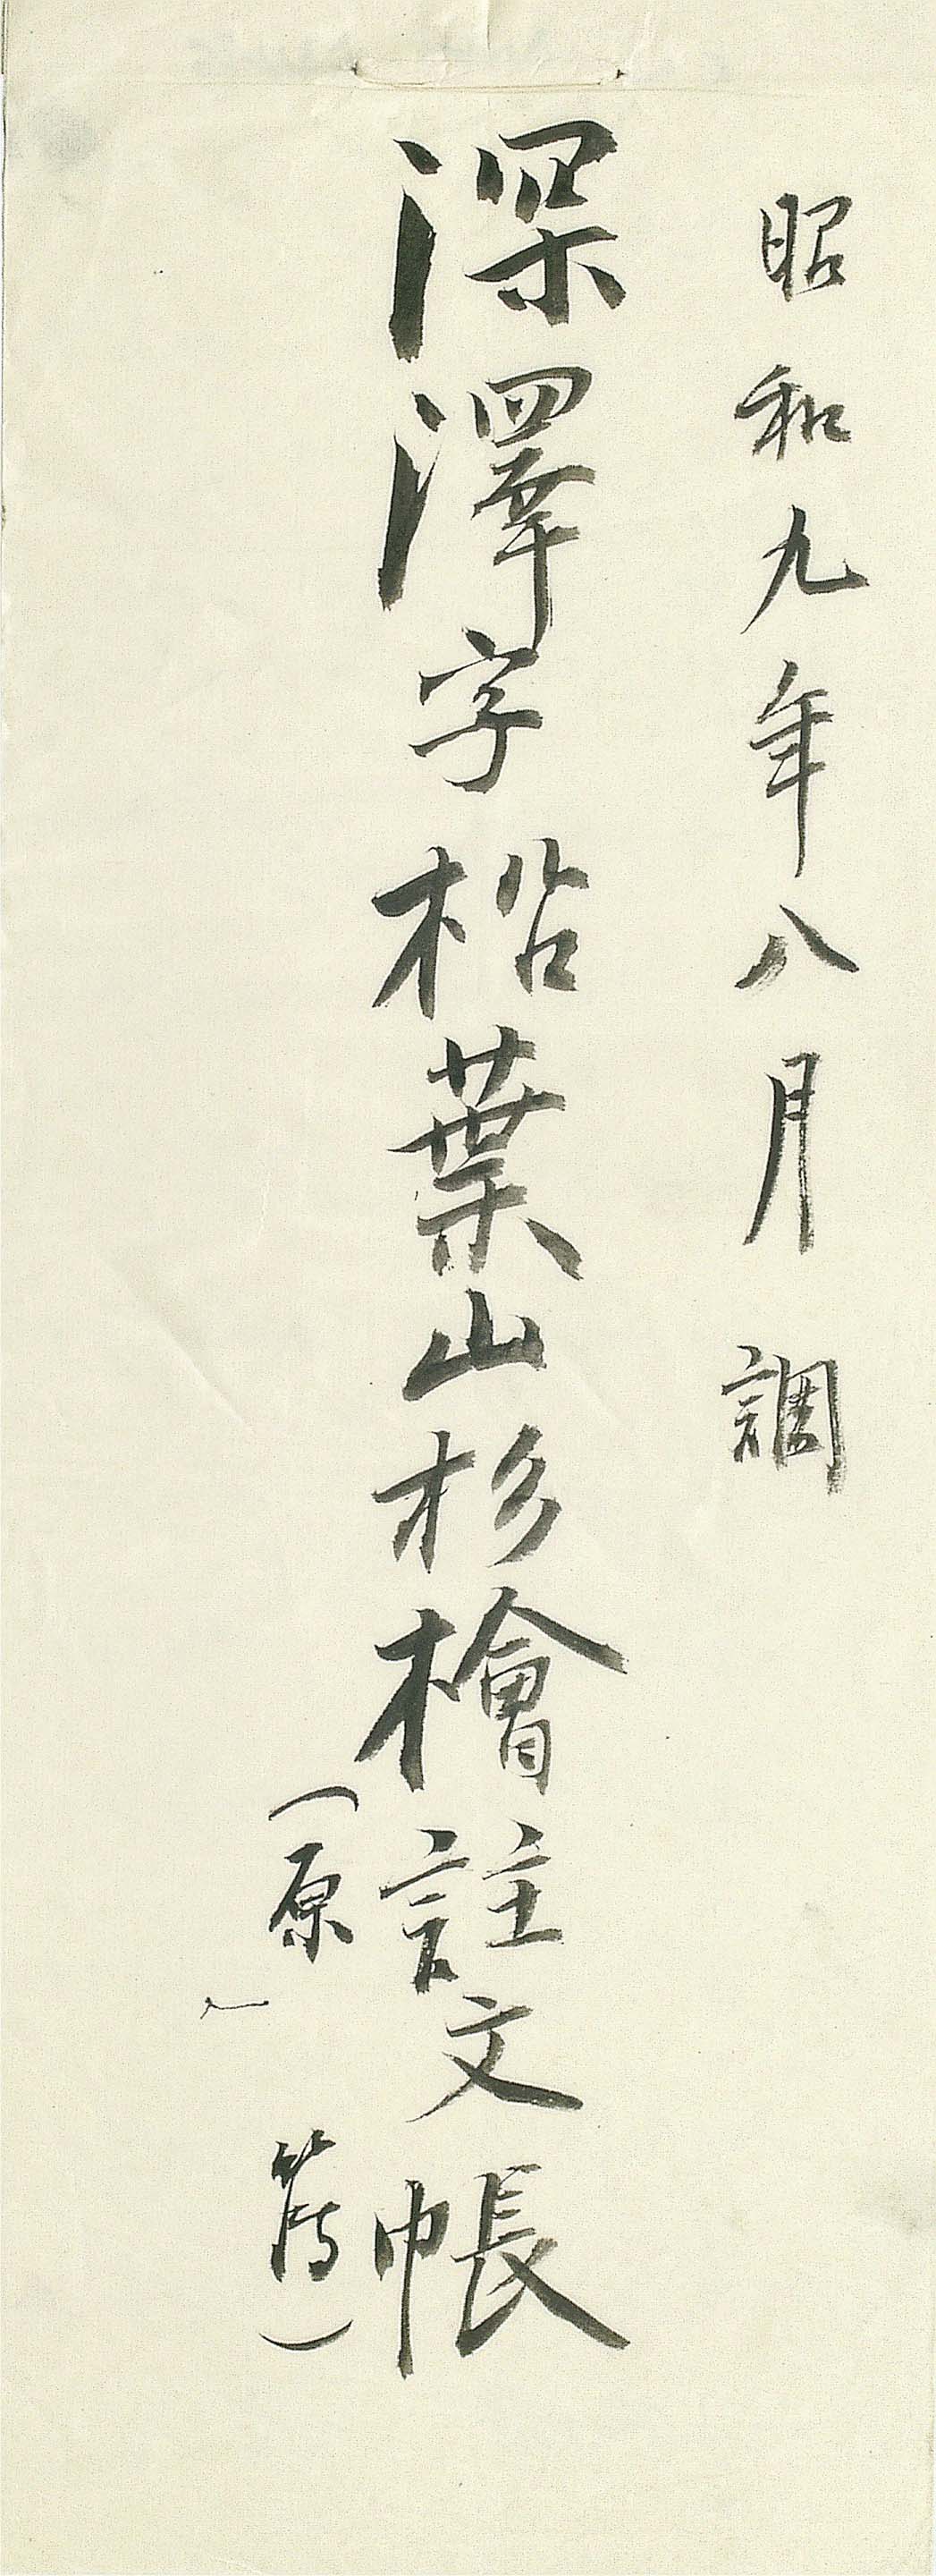 昭和九年八月 調
深澤字柗葉山杉檜註文帳
(原 簿)